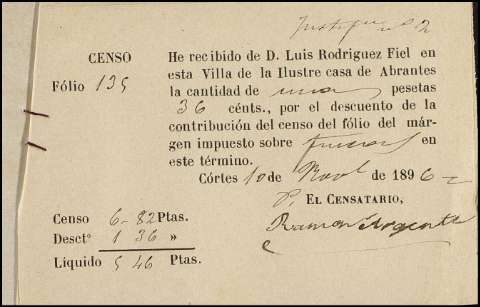 Justifte nº 2
CENSO
Fólio 135
He recibido de D. Luis Rodriguez Fiel en
esta Villa de la Ilustre casa de Abrantes
la cantidad de una pesetas
36 cénts., por el descuento de la
contribución del censo del fólio del már-
gen impuesto sobre fincas en
este término.
Córtes 10 de Novl de 1896
P. EL CENSATARIO,
Ramon Argente
Censo 6-82 Ptas.
Desctº 1 36 »
Líquido 5 46 Ptas.